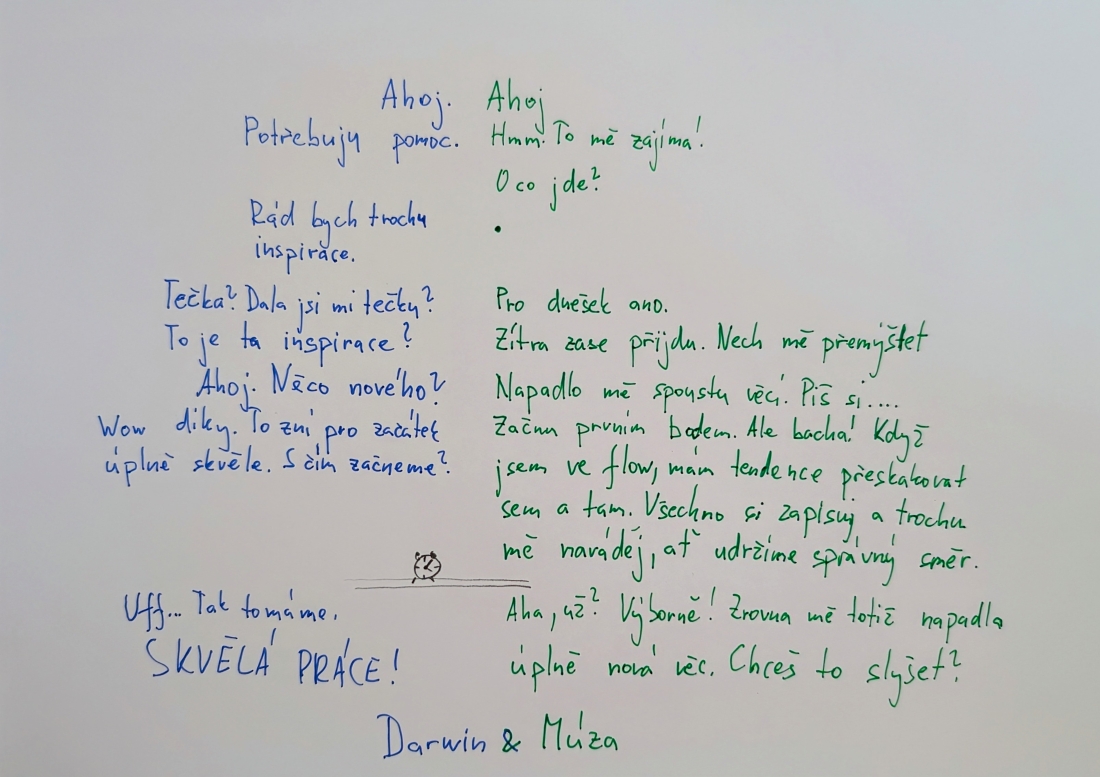 Ahoj. Ahoj
Potřebuju pomoc. Hmm. To mě zajímá!
O co jde?
Rád bych trochu
.
inspirace.
Tečka? Dala jsi mi tečku? Pro dnešek ano.
To je ta inspirace? Zítra zase přijdu. Nech mě přemýšlet
Ahoj. Něco nového? Napadlo mě spoustu věcí. Piš si....
Wow díky. To zní pro začátek Začnu prvním bodem. Ale bacha! Když
úplně skvěle. S čím začneme? jsem ve flow, mám tendence přeskakovat
sem a tam. Všechno si zapisuj a trochu
mě navádej, ať udržíme správný směr.
Uff... Tak to máme. Aha, už? Výborně! Zrovna mě totiž napadla
SKVĚLÁ PRÁCE! úplně nová věc. Chceš to slyšet?
Darwin & Múza